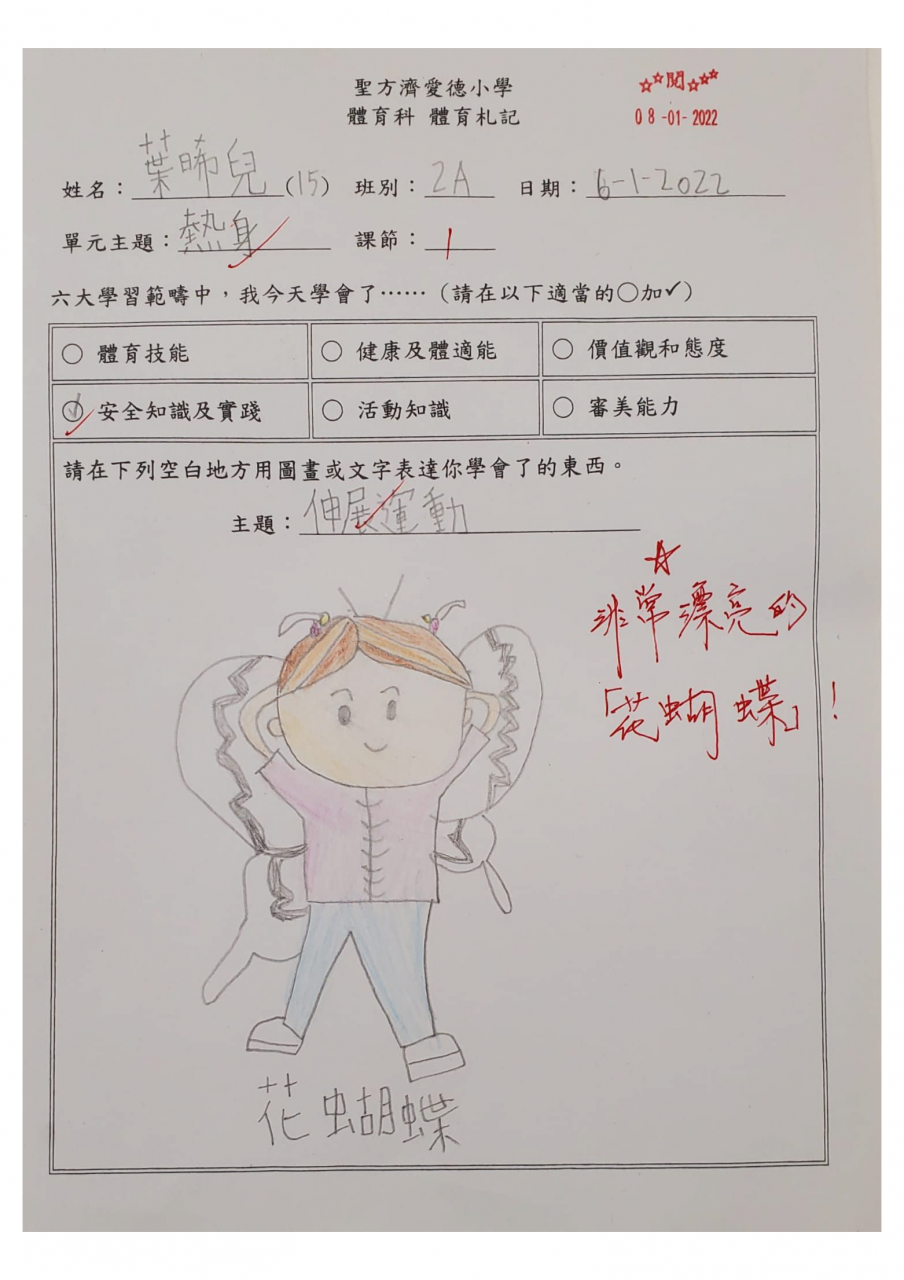 聖方濟愛德小學
體育科 體育札記
☆☆閱☆☆☆
08-01-2022
姓名：葉晞兒(15) 班別：2A 日期：6-1-2022
單元主題：熱身 課節：1
六大學習範疇中，我今天學會了……（請在以下適當的○加✓）
○ 體育技能 ○ 健康及體適能 ○ 價值觀和態度
✓ 安全知識及實踐 ○ 活動知識 ○ 審美能力
請在下列空白地方用圖畫或文字表達你學會了的東西。
主題：伸展運動
非常漂亮的
「花蝴蝶」！
花蝴蝶